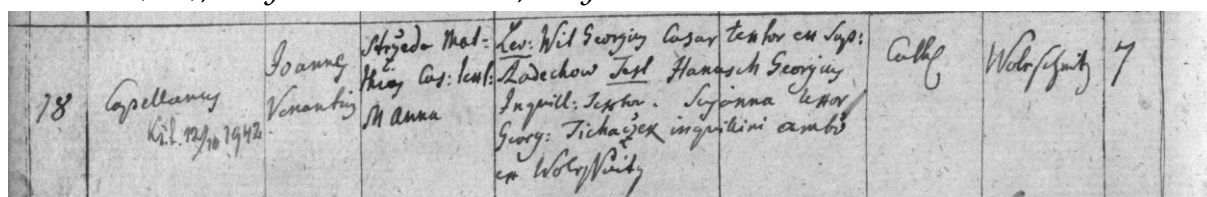 18
Capellanus
Kř. l. 12/10 1942
Joannes
Venantius
Střzeda Mat=
thias Cas: textl:
M Anna
Lev: Wit Georgius Casar textor ex Sup:
Zadechow Test Hanusch Georgius
Inquill: Textor. Susanna uxor
Georg: Tichaczek inquilini ambo
ex
Cathl
Wolrschitz
7